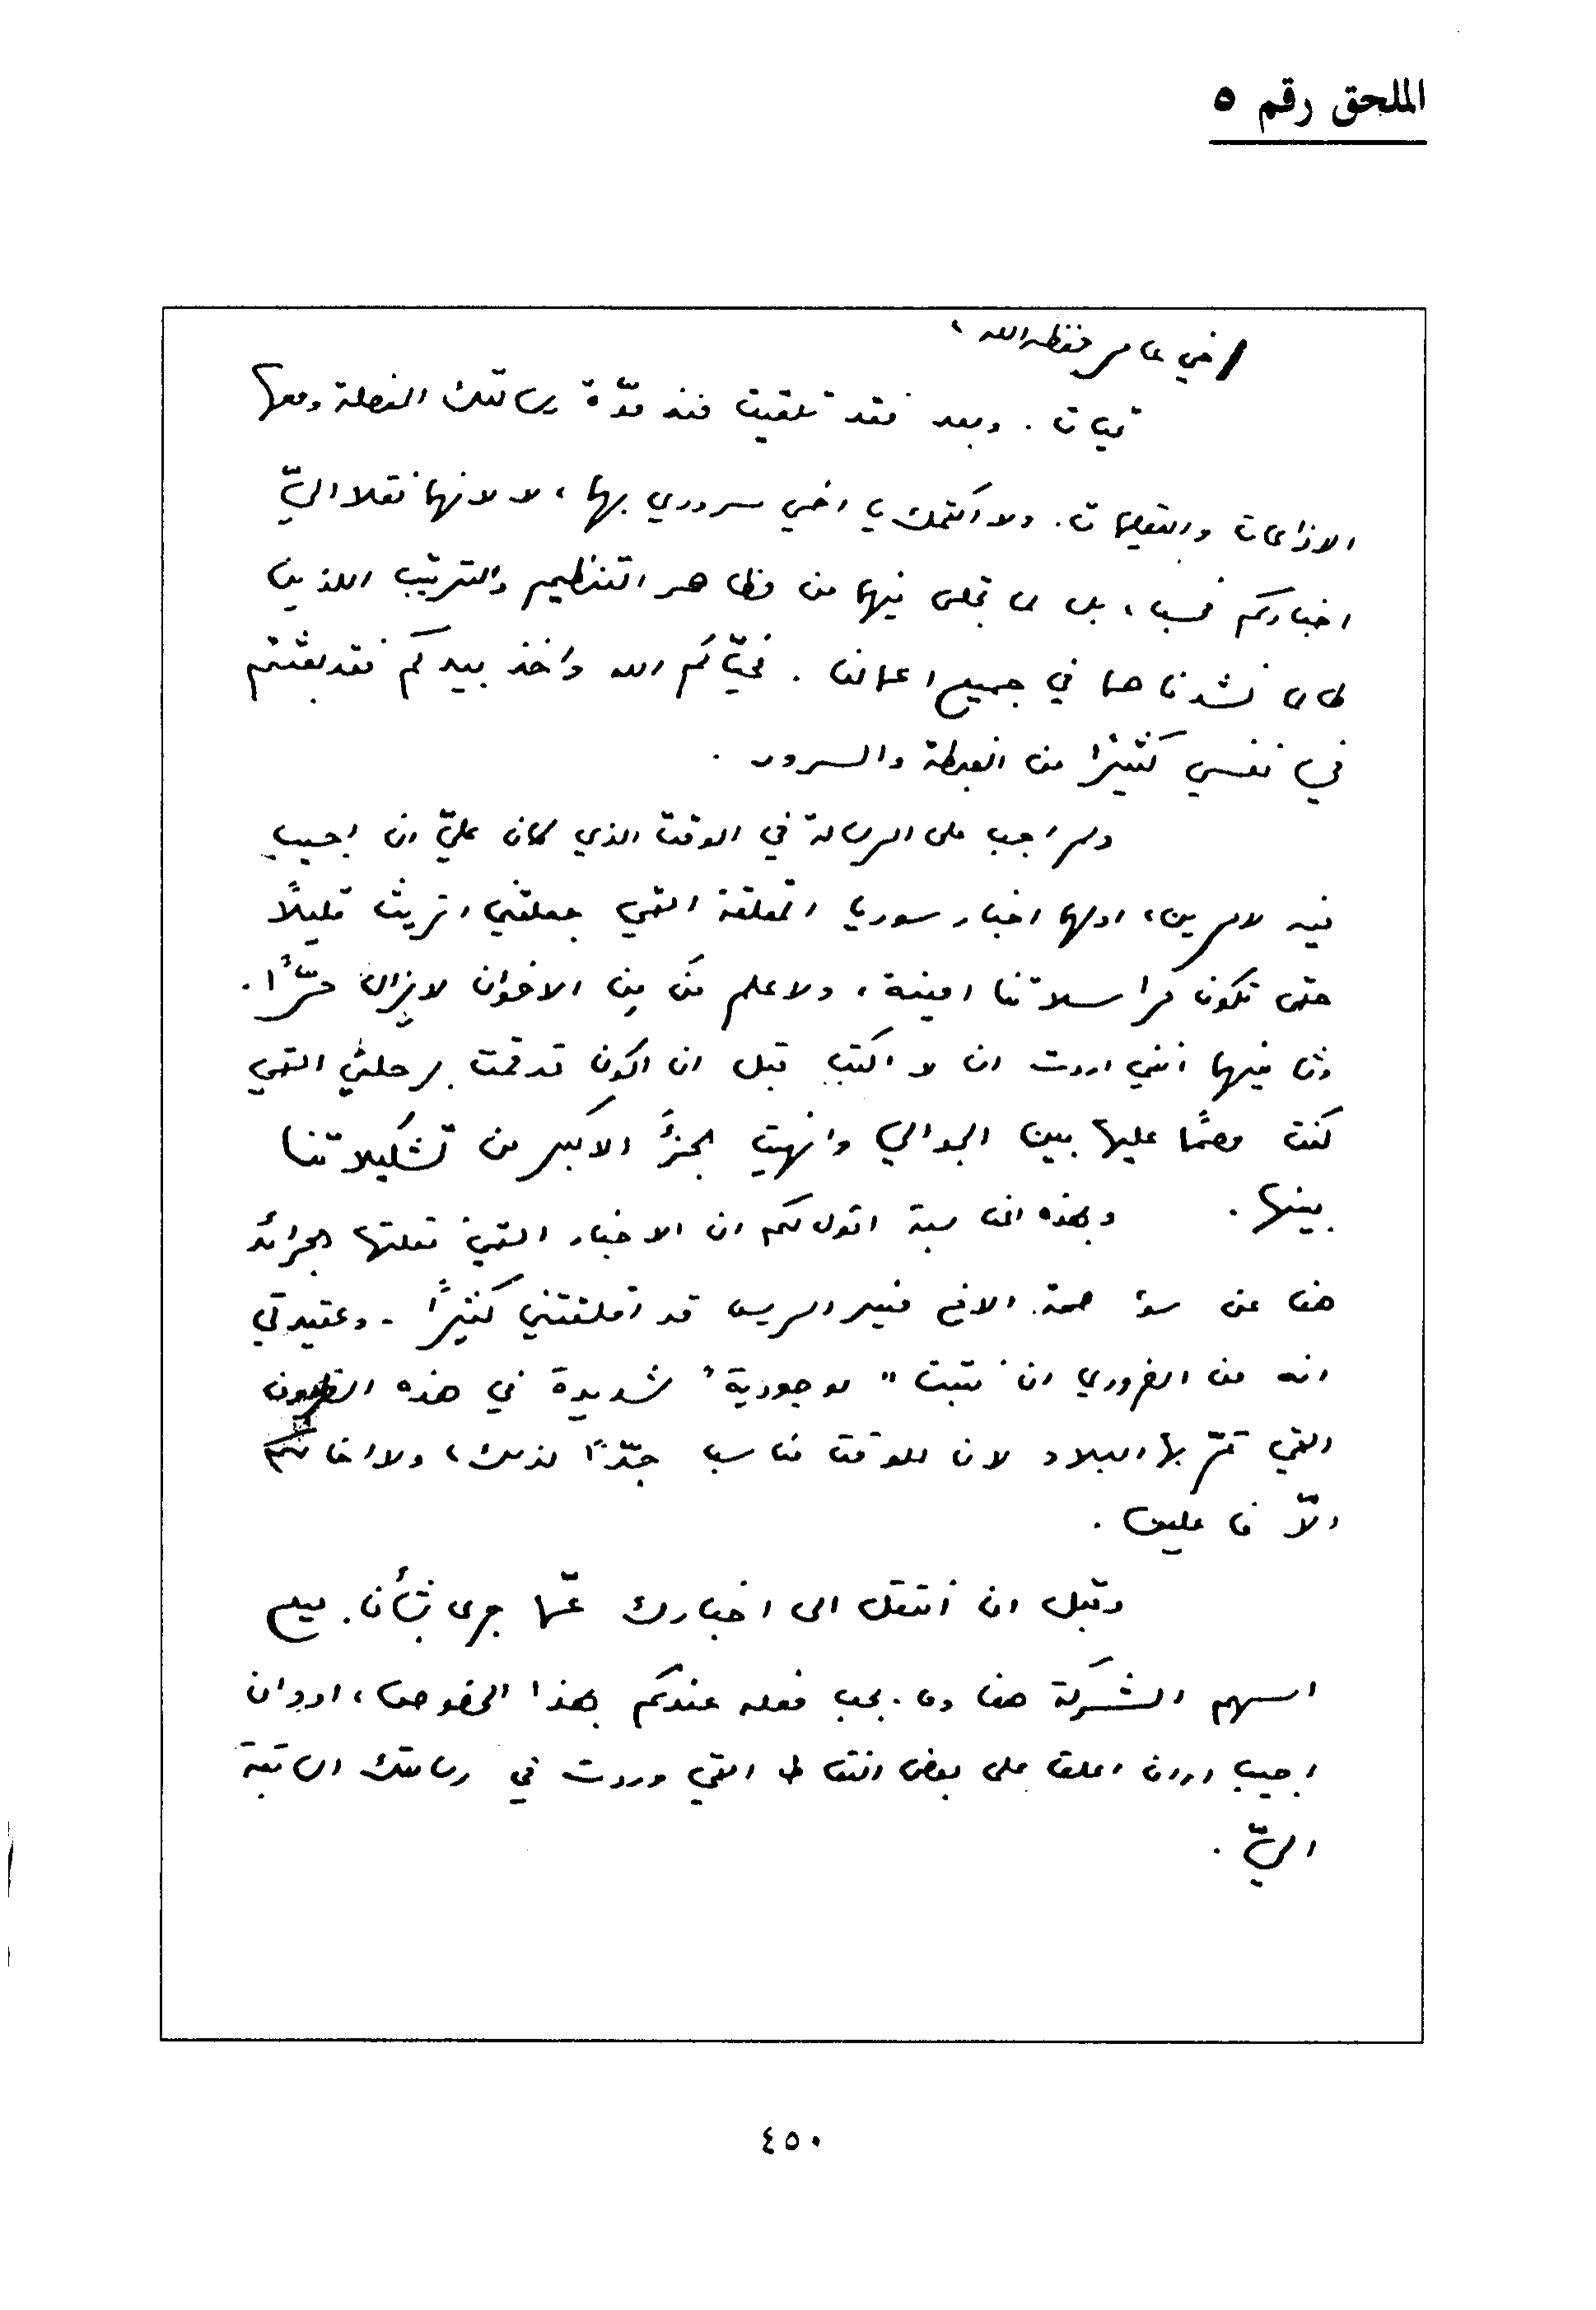 الملحق رقم ٥
اخي عامر حفظه الله،
تحيات. وبعد فقد تلقيت منذ مدّة رسالتك المفصلة ومعها
الاذاعات والتعليمات. ولا اكتمك يا اخي سروري بها، لا لانها نقلا اليّ
اخباركم فحسب، بل لما تجلى فيها من مظاهر التنظيم والترتيب اللذين
طالما نشدناهما في جميع اعمالنا. فحيّاكم الله واخذ بيدكم فقد بعثتم
في نفسي كثيرًا من الغبطة والسرور.
ولم اجب على الرسالة في الوقت الذي كان عليّ ان اجيب
فيه لامرين، اولهما اخبار سوريا المقلقة التي جعلتني اتريث قليلاً
حتى تكون مراسلاتنا امينة، ولاعلم مَن مِن الاخوان لايزال حرًّا.
وثانيهما انني اردت ان لا اكتب قبل ان اكون قد قمت برحلتي التي
كنت مصممًا عليها بين الجوالي وانهيت الجزء الاكبر من تشكيلاتنا
بينها. وبهذه المناسبة اقول لكم ان الاخبار التي نقلتها الجرائد
هنا عن سوء صحة الاخ منير الريس قد اقلقتني كثيرًا. وعقيدتي
انه من الضروري ان نثبت "موجودية" شديدة في هذه الظروف
التي تمرّ بها البلاد لان الوقت مناسب جدًّا لذلك، ولا اخالكم
الاّ فاعلين.
وقبل ان انتقل الى اخبارك عمّا جرى بشأن بيع
اسهم الشركة هنا وما يجب فعله عندكم بهذا الخصوص، اود ان
اجيب او ان اعلق على بعض النقاط التي وردت في رسالتك السابقة
اليّ.
٤٥٠